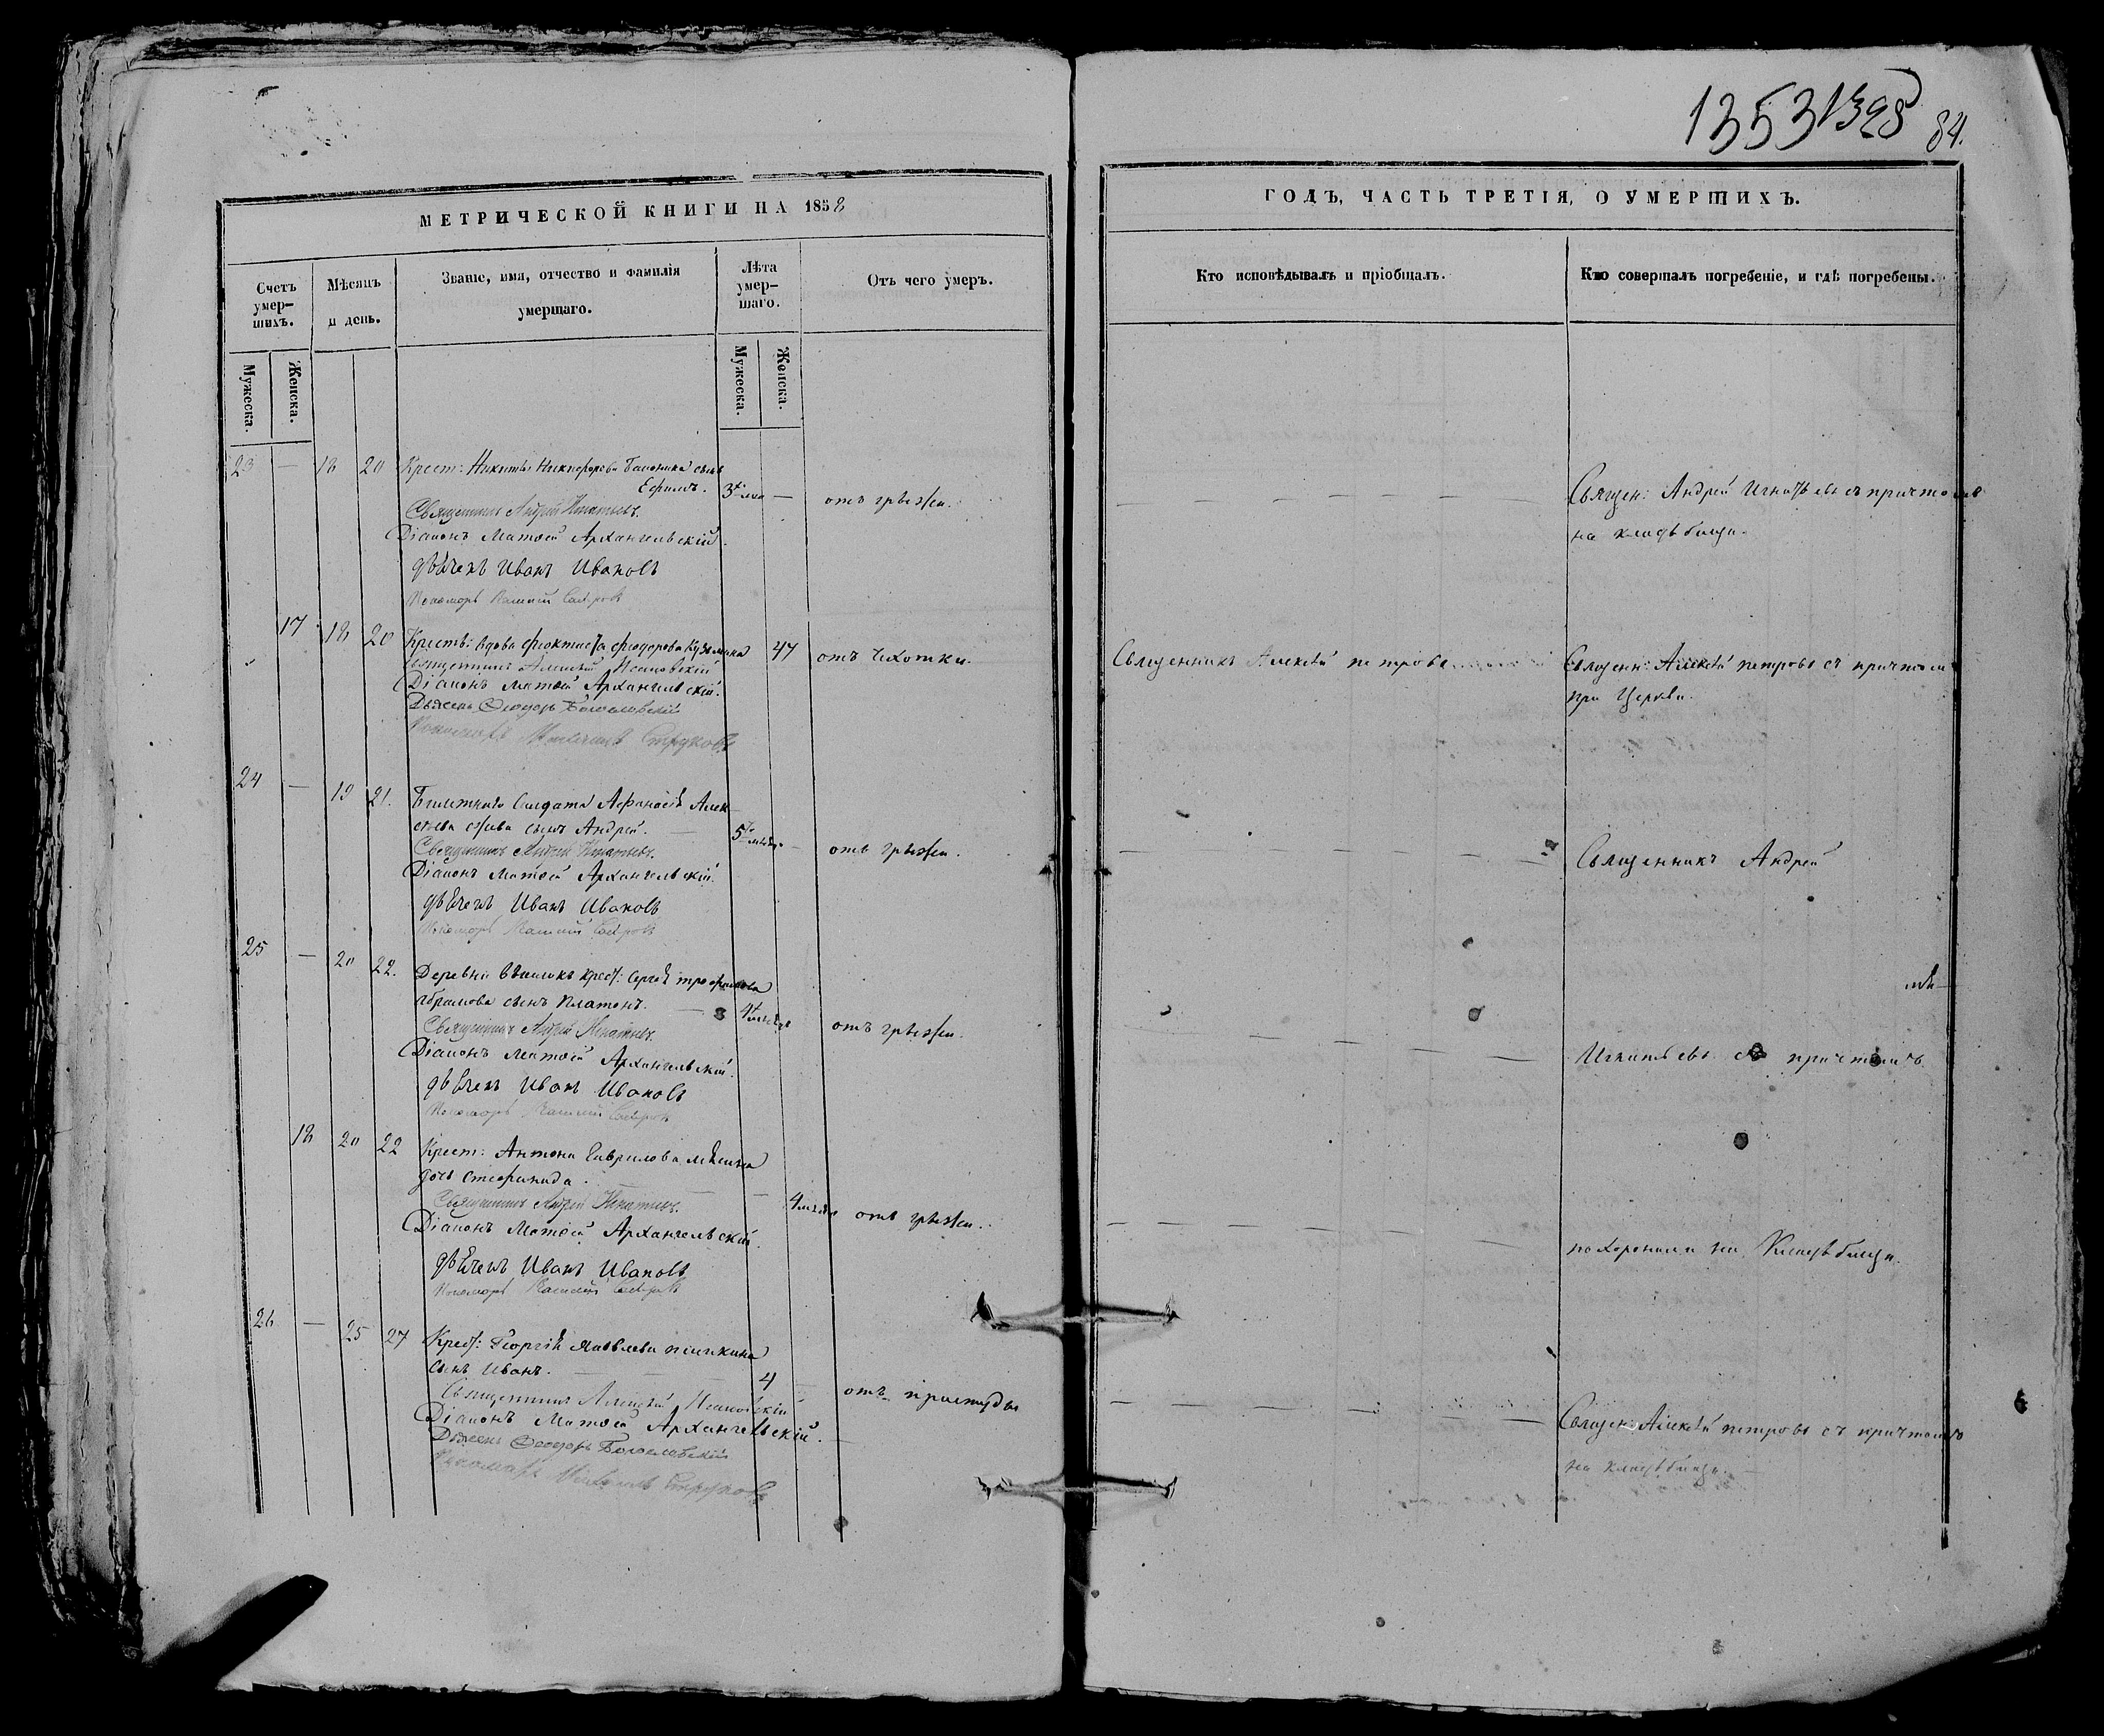 1353 1328 84.
МЕТРИЧЕСКОЙ КНИГИ НА 1858
Счетъ умер-шихъ.
Мѣсяцъ и день.
Званіе, имя, отчество и фамилія умершаго.
Лѣта умер-шаго.
Отъ чего умеръ.
Мужеска.
Женска.
Мужеска.
Женска.
23 — 18 20 Крест: Никиты Никифорова сынъ
Ефимъ. 3 — отъ грыжи.
Священникъ Андрей Игнатьевъ.
Діаконъ Матѳей Архангельскій.
дьячекъ Иванъ Ивановъ
Пономарь
17 18 20 Крестъ: вдова Феоктиста Феодорова Кузьмина 47 отъ чахотки.
Священникъ Алексѣй
Діаконъ Матѳей Архангельскій.
Дьячекъ Ѳеодоръ Богословскій
Пономарь Струковъ
24 — 19 21. Билетнаго Солдата Афанасія Алек-
сѣева сынъ Андрей. 5 — отъ грыжи.
Священникъ Андрей Игнатьевъ.
Діаконъ Матѳей Архангельскій.
дьячекъ Иванъ Ивановъ
Пономарь
25 — 20 22. Деревни крест: Сергѣя Трофимова
Абрамова сынъ Платонъ. 4 отъ грыжи.
Священникъ Андрей Игнатьевъ.
Діаконъ Матѳей Архангельскій.
дьячекъ Иванъ Ивановъ
Пономарь
18 20 22 Крест: Антона Гаврилова
дочь Стефанида. — 4 отъ грыжи.
Священникъ Андрей Игнатьевъ.
Діаконъ Матѳей Архангельскій.
дьячекъ Иванъ Ивановъ
Пономарь
26 — 25 27 Крест: Георгія Яковлева
сынъ Иванъ. 4 отъ простуды
Священникъ Алексѣй
Діаконъ Матѳей Архангельскій.
Дьячекъ Ѳеодоръ Богословскій
Пономарь Струковъ
ГОДЪ, ЧАСТЬ ТРЕТІЯ, О УМЕРШИХЪ.
Кто исповѣдывалъ и пріобщалъ.
Кто совершалъ погребеніе, и гдѣ погребены.
Священ: Андрей Игнатьевъ съ причтомъ
на кладбищѣ.
Священникъ Алексѣй Петровъ
Священ: Алексѣй Петровъ съ причтомъ
при Церкви.
Священникъ Андрей
Игнатьевъ съ причтомъ
похоронили на Кладбищѣ.
Священ: Алексѣй Петровъ съ причтомъ
на кладбищѣ.